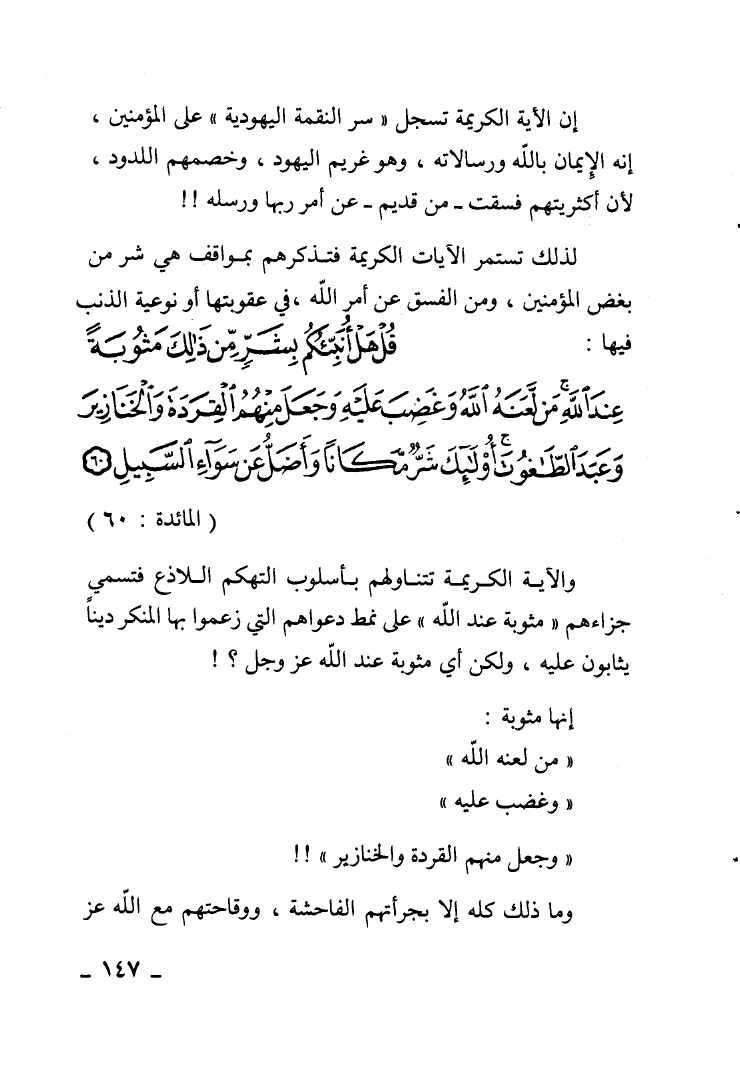 إن الآية الكريمة تسجل « سر النقمة اليهودية » على المؤمنين ،
إنه الإيمان بالله ورسالاته ، وهو غريم اليهود ، وخصمهم اللدود ،
لأن أكثريتهم فسقت ـ من قديم ـ عن أمر ربها ورسله !!
لذلك تستمر الآيات الكريمة فتذكرهم بمواقف هي شر من
بغض المؤمنين ، ومن الفسق عن أمر الله ،في عقوبتها أو نوعية الذنب
فيها : قُلْ هَلْ أُنَبِّئُكُم بِشَرٍّ مِّن ذَٰلِكَ مَثُوبَةً
عِندَ ٱللَّهِ ۚ مَن لَّعَنَهُ ٱللَّهُ وَغَضِبَ عَلَيْهِ وَجَعَلَ مِنْهُمُ ٱلْقِرَدَةَ وَٱلْخَنَازِيرَ
وَعَبَدَ ٱلطَّٰغُوتَ ۚ أُوْلَٰٓئِكَ شَرٌّ مَّكَانًا وَأَضَلُّ عَن سَوَآءِ ٱلسَّبِيلِ ٦٠
( المائدة : ٦٠ )
والآية الكريمة تتناولهم بأسلوب التهكم اللاذع فتسمي
جزاءهم « مثوبة عند الله » على نمط دعواهم التي زعموا بها المنكر ديناً
يثابون عليه ، ولكن أي مثوبة عند الله عز وجل ؟ !
إنها مثوبة :
« من لعنه الله »
« وغضب عليه »
« وجعل منهم القردة والخنازير » !!
وما ذلك كله إلا بجرأتهم الفاحشة ، ووقاحتهم مع الله عز
ـ ١٤٧ ـ